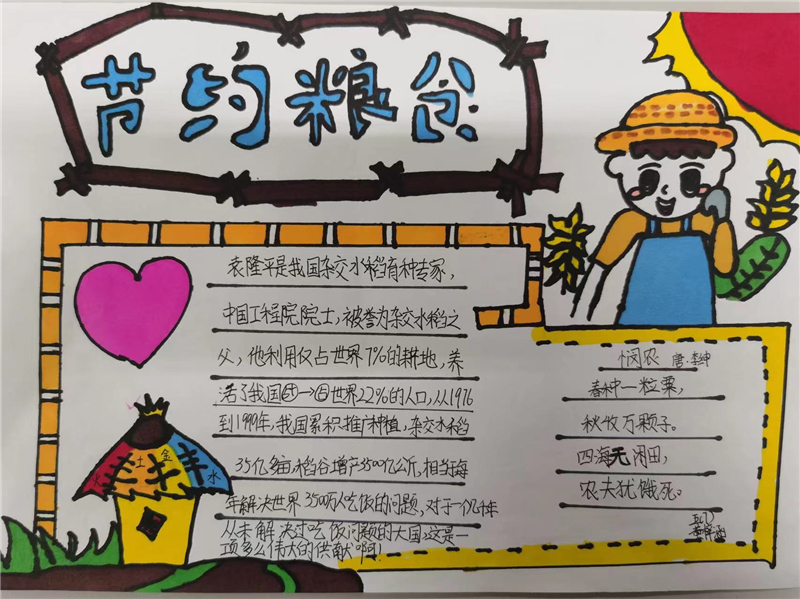 节约粮食
袁隆平是我国杂交水稻育种专家，
中国工程院院士，被誉为杂交水稻之
父，他利用仅占世界7%的耕地，养
活了我国占世界22%的人口，从1976
到1999年，我国累积推广种植，杂交水稻
35亿多亩，稻谷增产3500亿公斤，相当每
年解决世界3500万人吃饭的问题，对于一个几千年
从未解决过吃饭问题的大国，这是一
项多么伟大的供献啊！
悯农 唐·李绅
春种一粒粟，
秋收万颗子。
四海无闲田，
农夫犹饿死。
火 土 金 水